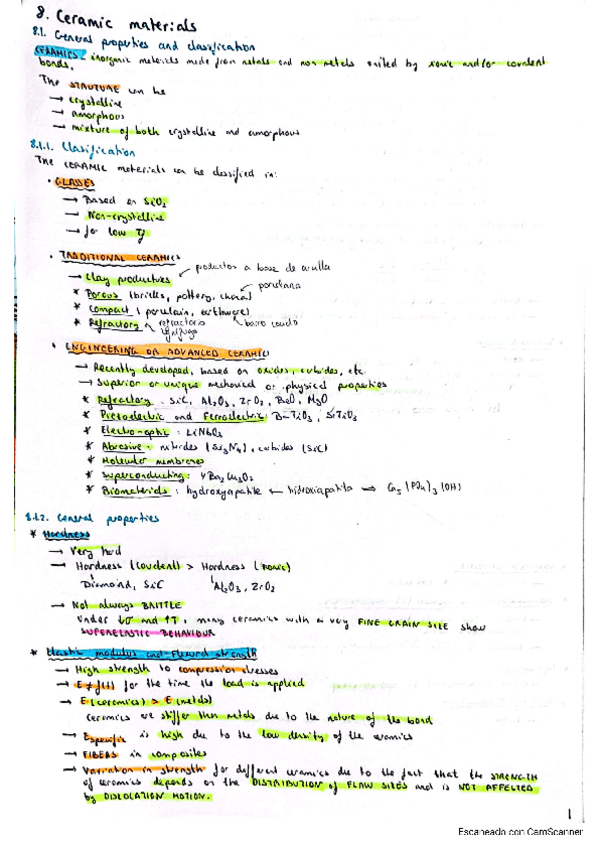 8. Ceramic materials
8.1. General properties and classification
CERAMICS: inorganic materials made from metals and non metals united by ionic and/or covalent
bonds.
The STRUCTURE can be
→ crystalline
→ amorphous
→ mixture of both crystalline and amorphous
8.1.1. Clasification
The CERAMIC materials can be classified in:
• GLASSES
→ Based on SiO2
→ Non-crystalline
→ for low
• TRADITIONAL CERAMICS
productos a base de arcilla
→ Clay productures
porcelana
* Porous (bricks, pottery, china)
* Compact (porcelain, earthware)
* Refractory
refractario
barro cocido
ignífugo
• ENGINEERING OR ADVANCED CERAMICS
→ Recently developed, based on oxides, carbides, etc.
→ Superior or unique mechanical or physical properties
* Refractory: SiC, Al2O3, ZrO2, BeO, MgO
* Piezoelectric and Ferroelectric: BaTiO3, SrTiO3
* Electro-optic: LiNbO3
* Abrasive: nitrides (Si3N4), carbides (SiC)
* Molecular membranes
* Superconducting:
* Biomaterials: hydroxyapatite ← hidroxiapatita ⇒ Ca5(PO4)3(OH)
8.1.2. General properties
* Hardness
→ Very hard
→ Hardness (covalent) > Hardness (ionic)
Diamond, SiC Al2O3, ZrO2
→ Not always BRITTLE
Under and ↑T, many ceramics with a very FINE GRAIN SIZE show
SUPERELASTIC BEHAVIOUR
* Elastic modulus and Flexural strength
→ High strength to compression stresses
→ E≠f(t) for the time the load is applied
→ E (ceramics) > E (metals)
ceramics are stiffer than metals due to the nature of the bond
→ Especific is high due to the low density of the ceramics
→ FIBERS in composites
→ Variation in strength for different ceramics due to the fact that the STRENGTH
of ceramics depends on the DISTRIBUTION of FLAW SIZES and is NOT AFFECTED
by DISLOCATION MOTION.
1
Escaneado con CamScanner